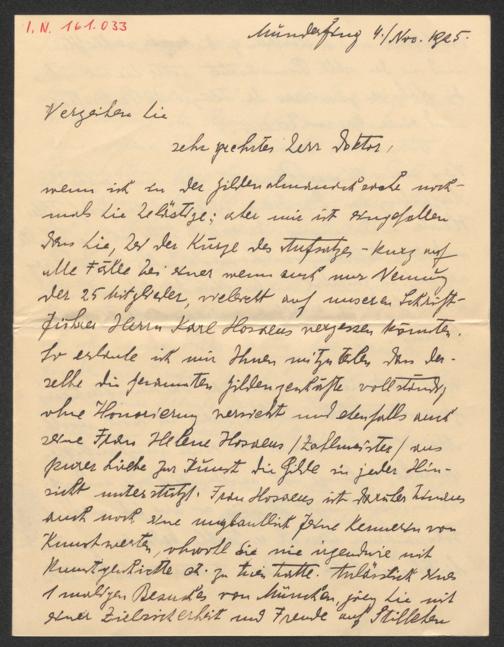 I. N. 161.033
Munderfing 4./Nov. 1925.
Verzeihen Sie
sehr geehrtes Herr Doktor,
wenn ich in der Gildenalmanachsache noch-
mals Sie belästige; aber mir ist eingefallen
dass Sie, bei der Kürze des Aufsatzes - kurz auf
alle Fälle bei einer wenn auch nur Nennung
der 25 Mitglieder, vielleicht auf unseren Schrift-
führer Herrn Karl Hosaeus vergessen könnten.
So erlaube ich mir Ihnen mitzuteilen dass der-
selbe die gesammten Gildengeschäfte vollständig
ohne Honorierung versieht und ebenfalls auch
seine Frau Helene Hosaeus /Zahlmeister/ aus
purer Liebe zur Kunst die Gilde in jeder Hin-
sicht unterstützt. Frau Hosaeus ist darüber hinaus
auch noch eine unglaublich feine Kennerin von
Kunstwerten, obwohl sie nie irgendwie mit
Kunstgeschichte zu tun hatte. Anlässlich eines
1 maligen Besuches von München, ging sie mit
einer Zielsicherheit und Freude auf Stilleben